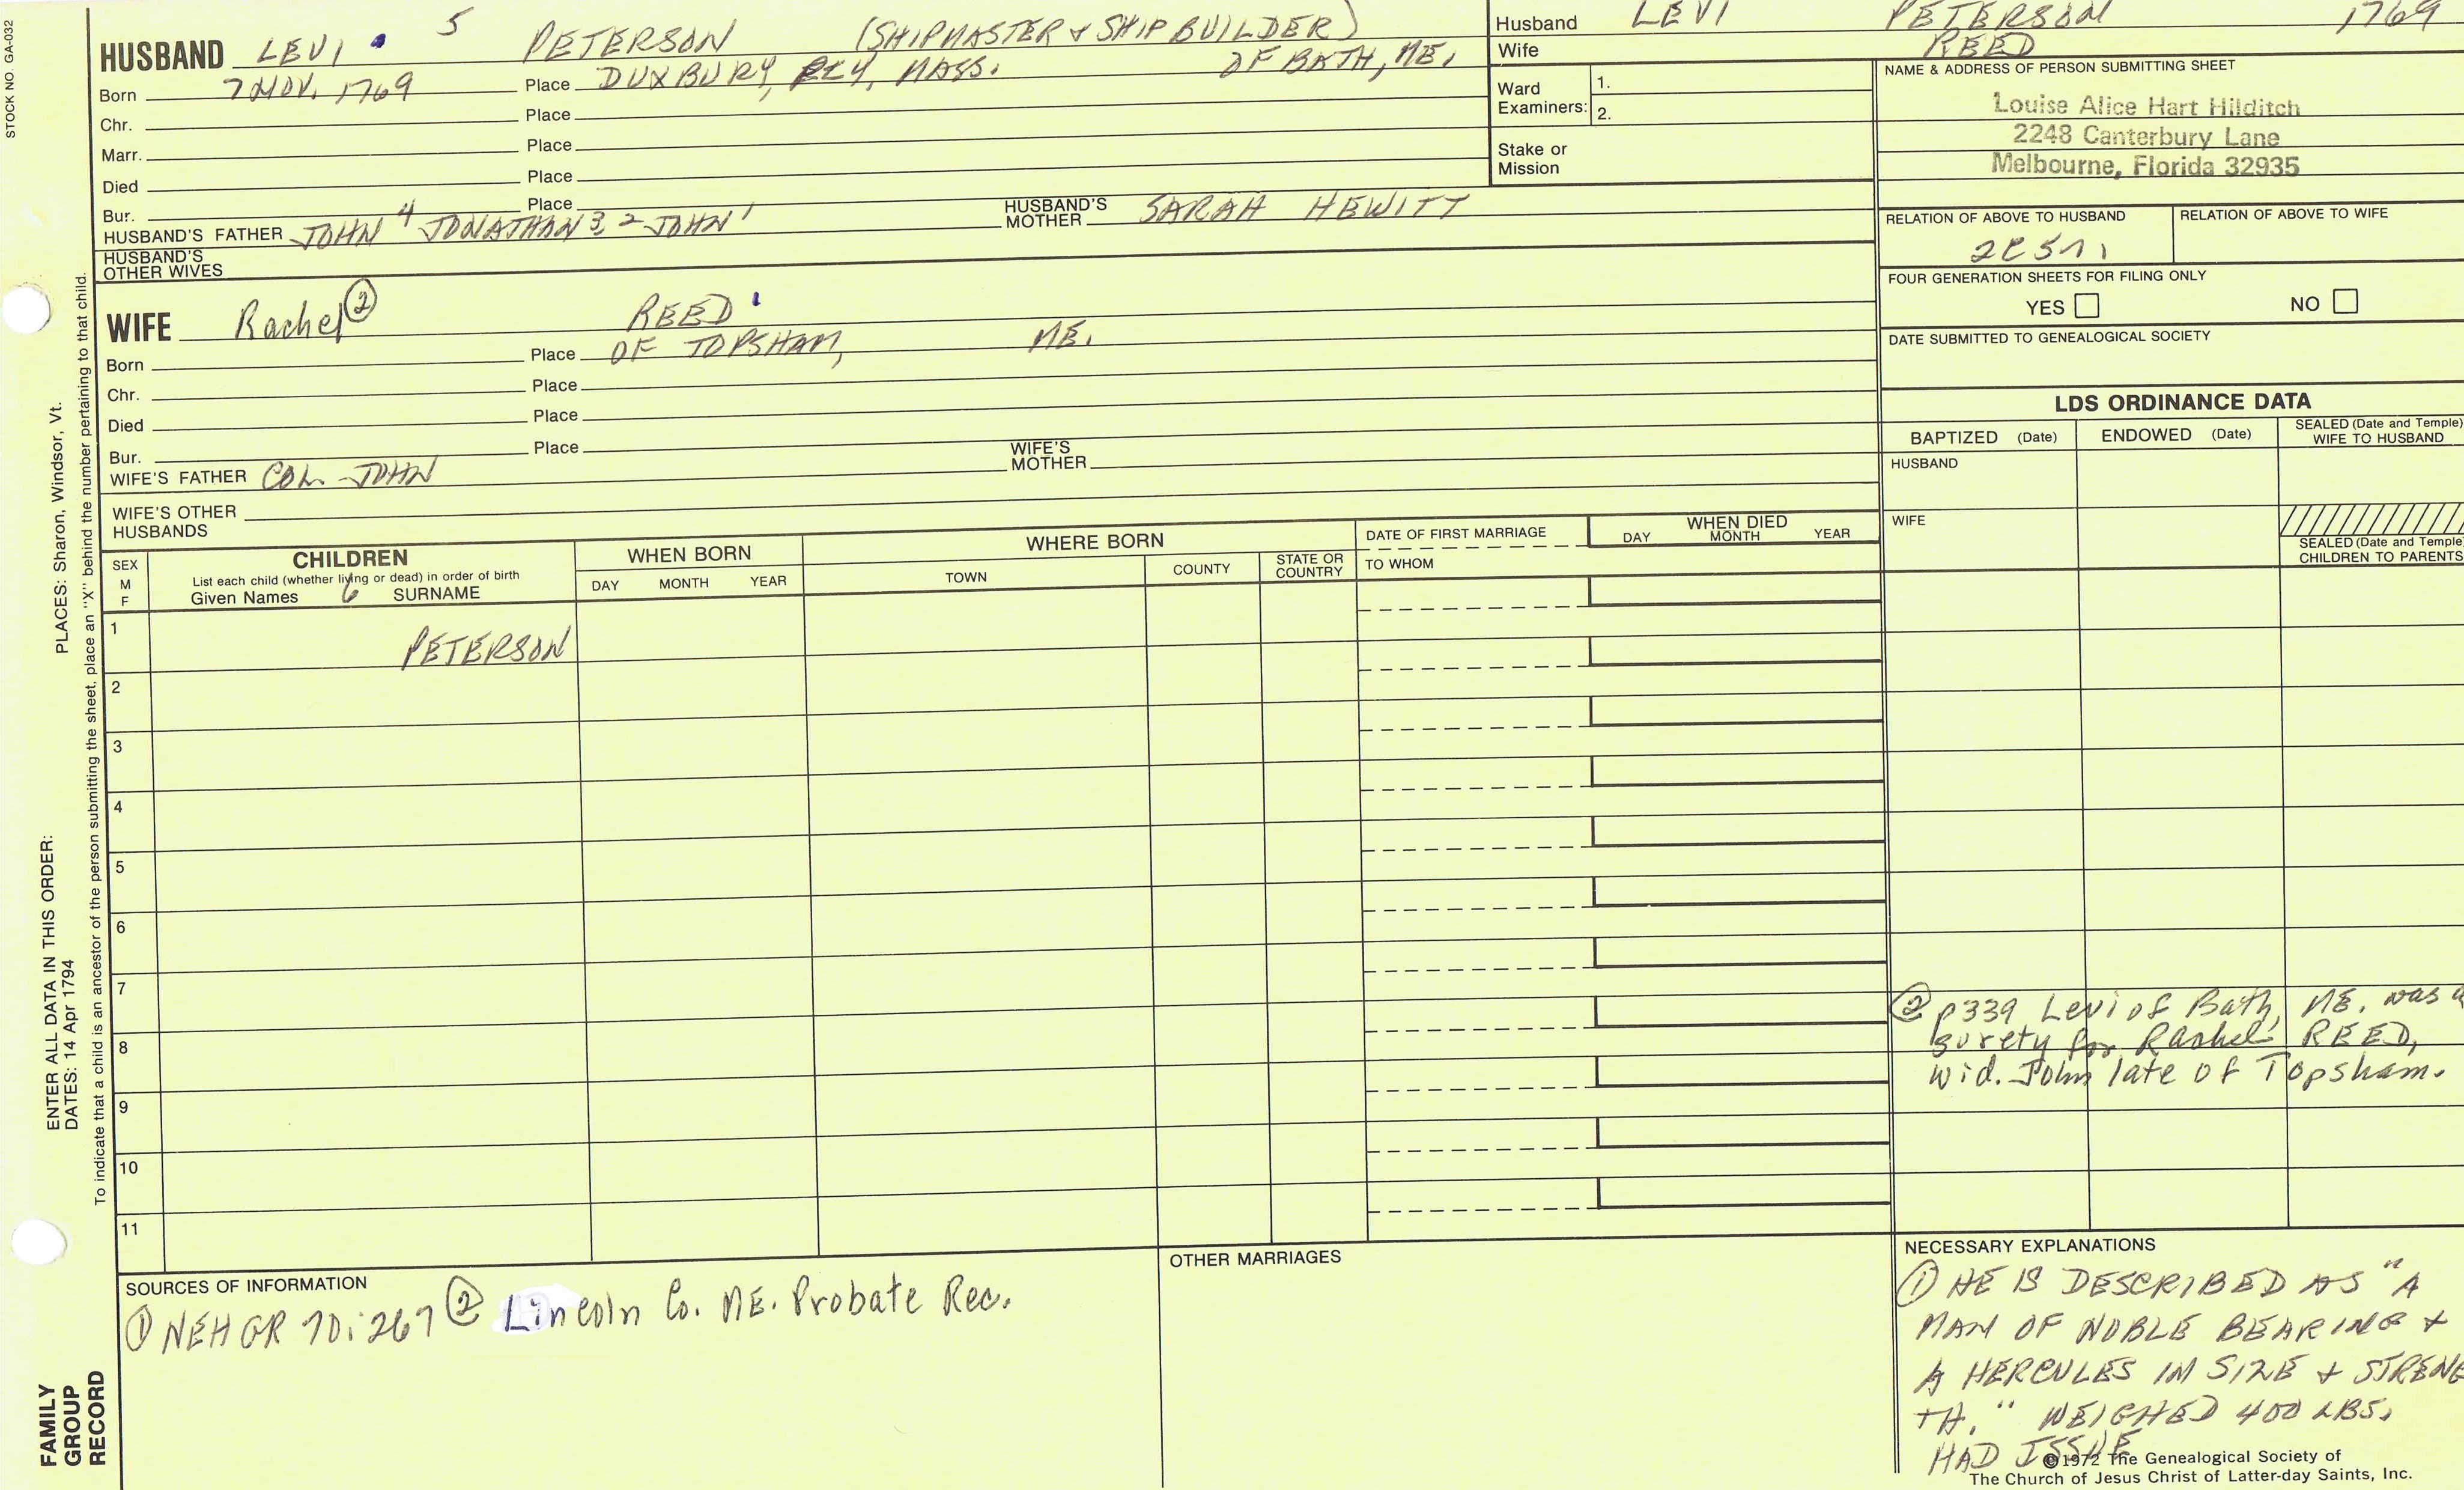 STOCK NO. GA-032
HUSBAND LEVI 5 PETERSON (SHIPMASTER & SHIP BUILDER)
Born 7 NOV. 1769 Place DUXBURY, PLY, MASS. OF BATH, ME.
Chr. Place
Marr. Place
Died Place
Bur. Place
HUSBAND'S FATHER JOHN 4 JONATHAN 3, 2 JOHN 1 HUSBAND'S MOTHER SARAH HEWITT
HUSBAND'S OTHER WIVES
WIFE Rachel ② REED
Born Place OF TOPSHAM, ME.
Chr. Place
Died Place
Bur. Place
WIFE'S FATHER COL. JOHN WIFE'S MOTHER
WIFE'S OTHER HUSBANDS
Husband LEVI PETERSON 1769
Wife REED
Ward Examiners: 1.
2.
Stake or Mission
NAME & ADDRESS OF PERSON SUBMITTING SHEET
Louise Alice Hart Hilditch
2248 Canterbury Lane
Melbourne, Florida 32935
RELATION OF ABOVE TO HUSBAND RELATION OF ABOVE TO WIFE
FOUR GENERATION SHEETS FOR FILING ONLY
YES NO
DATE SUBMITTED TO GENEALOGICAL SOCIETY
LDS ORDINANCE DATA
BAPTIZED (Date) ENDOWED (Date) SEALED (Date and Temple) WIFE TO HUSBAND
HUSBAND
WIFE
SEALED (Date and Temple) CHILDREN TO PARENTS
SEX M F
CHILDREN
List each child (whether living or dead) in order of birth
Given Names 6 SURNAME
WHEN BORN
DAY MONTH YEAR
WHERE BORN
TOWN COUNTY STATE OR COUNTRY
DATE OF FIRST MARRIAGE
TO WHOM
WHEN DIED
DAY MONTH YEAR
1 PETERSON
2
3
4
5
6
7
8
9
10
11
② p339 Levi of Bath, ME. was a
surety for Rachel REED,
wid. John late of Topsham.
SOURCES OF INFORMATION
① NEHGR 70:267 ② Lincoln Co. ME. Probate Rec.
OTHER MARRIAGES
NECESSARY EXPLANATIONS
① HE IS DESCRIBED AS "A
MAN OF NOBLE BEARING &
A HERCULES IN SIZE & STRENG
TH." WEIGHED 400 LBS.
HAD ISSUE
©1972 The Genealogical Society of
The Church of Jesus Christ of Latter-day Saints, Inc.
ENTER ALL DATA IN THIS ORDER:
DATES: 14 Apr 1794 PLACES: Sharon, Windsor, Vt.
To indicate that a child is an ancestor of the person submitting the sheet, place an "X" behind the number pertaining to that child.
FAMILY
GROUP
RECORD